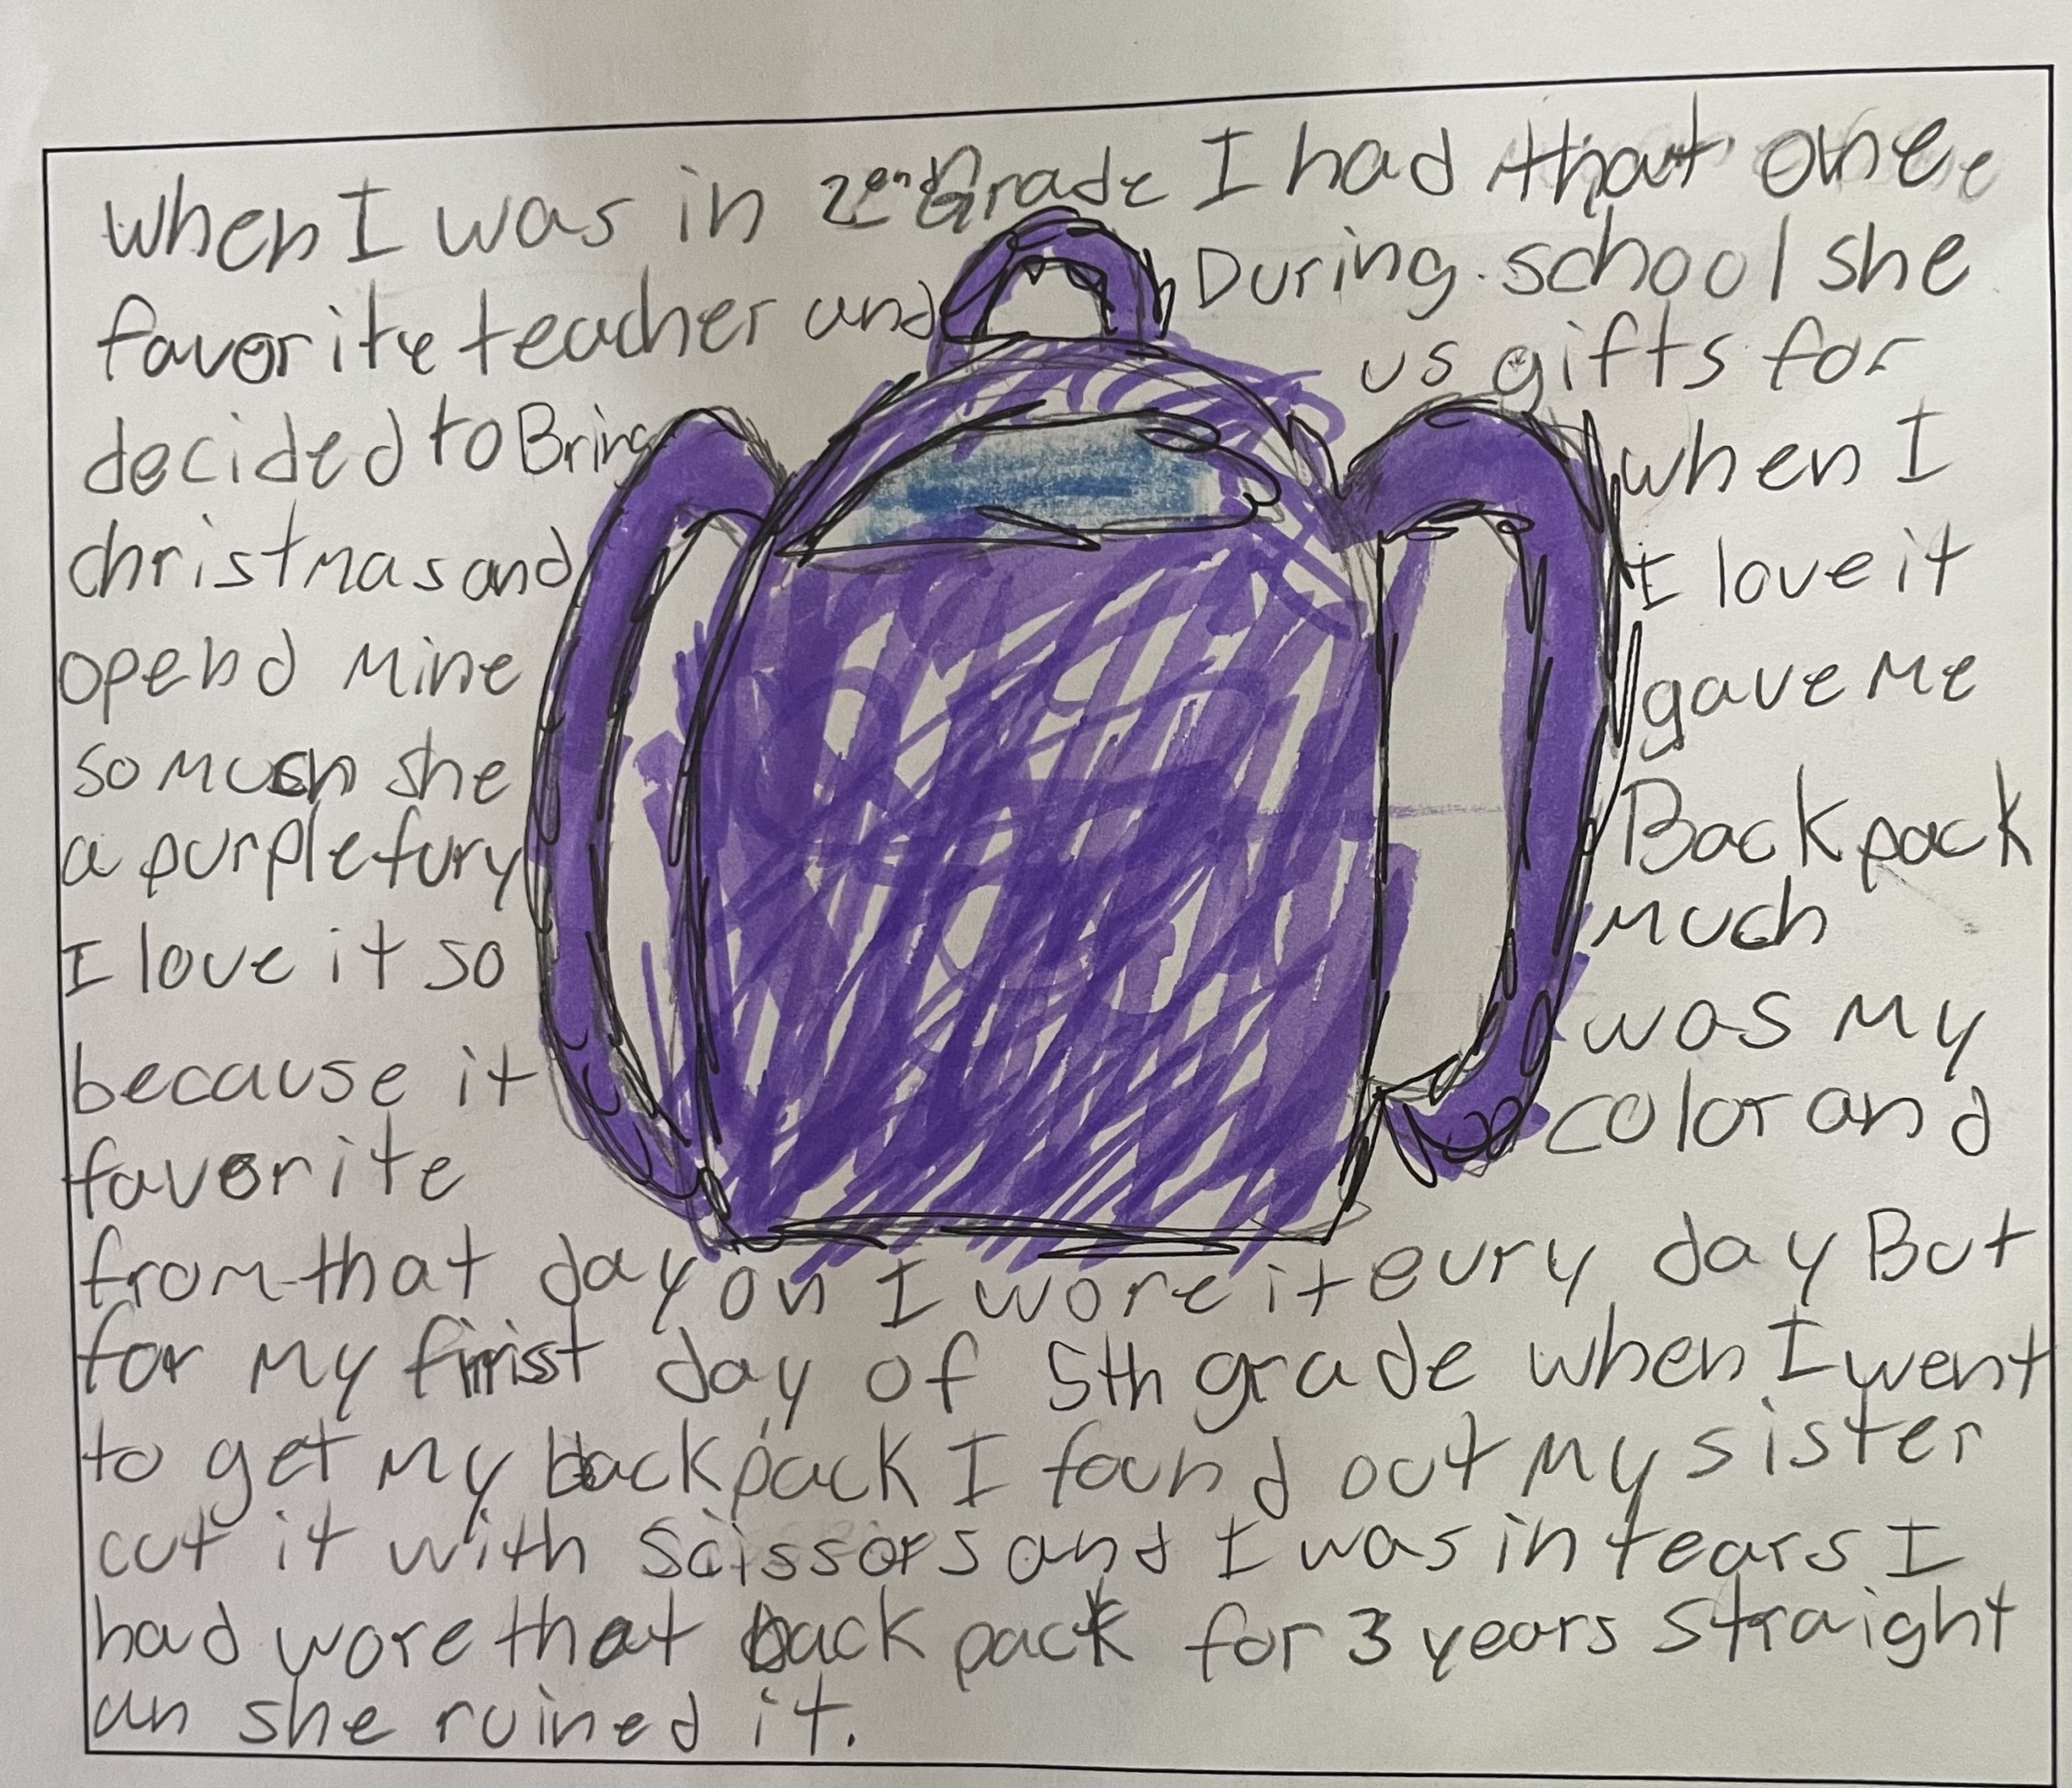 when I was in 2end Grade I had that one
favorite teacher and During school she
decided to Bring us gifts for
christmas and when I
opend mine I love it
so much she gave me
a purple fury Back pack
I love it so much
because it was my
favorite color and
from that day on I wore it eury day But
for my first day of 5th grade when I went
to get my backpack I found out my sister
cut it with scissors and I was in tears I
had wore that back pack for 3 years straight
an she ruined it.